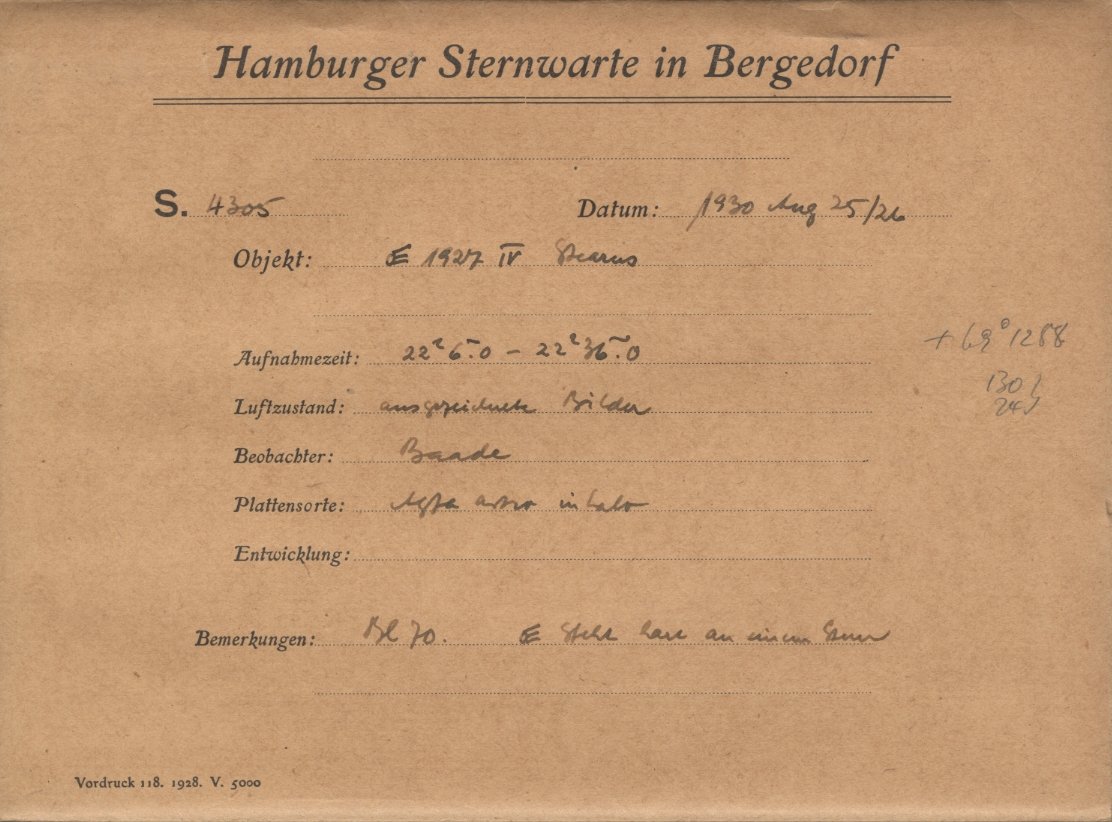 Hamburger Sternwarte in Bergedorf
S. 4305 Datum: 1930 Aug 25/26
Objekt: 1927 IV Stearns
+69° 1288
Aufnahmezeit: 22ʰ6ᵐ.0 – 22ʰ36ᵐ.0
130
24
Luftzustand: ausgezeichnete Bilder
Beobachter: Baade
Plattensorte: Agfa astro
Entwicklung:
Bemerkungen: Bl 70. steht hart an einem Stern
Vordruck 118. 1928. V. 5000